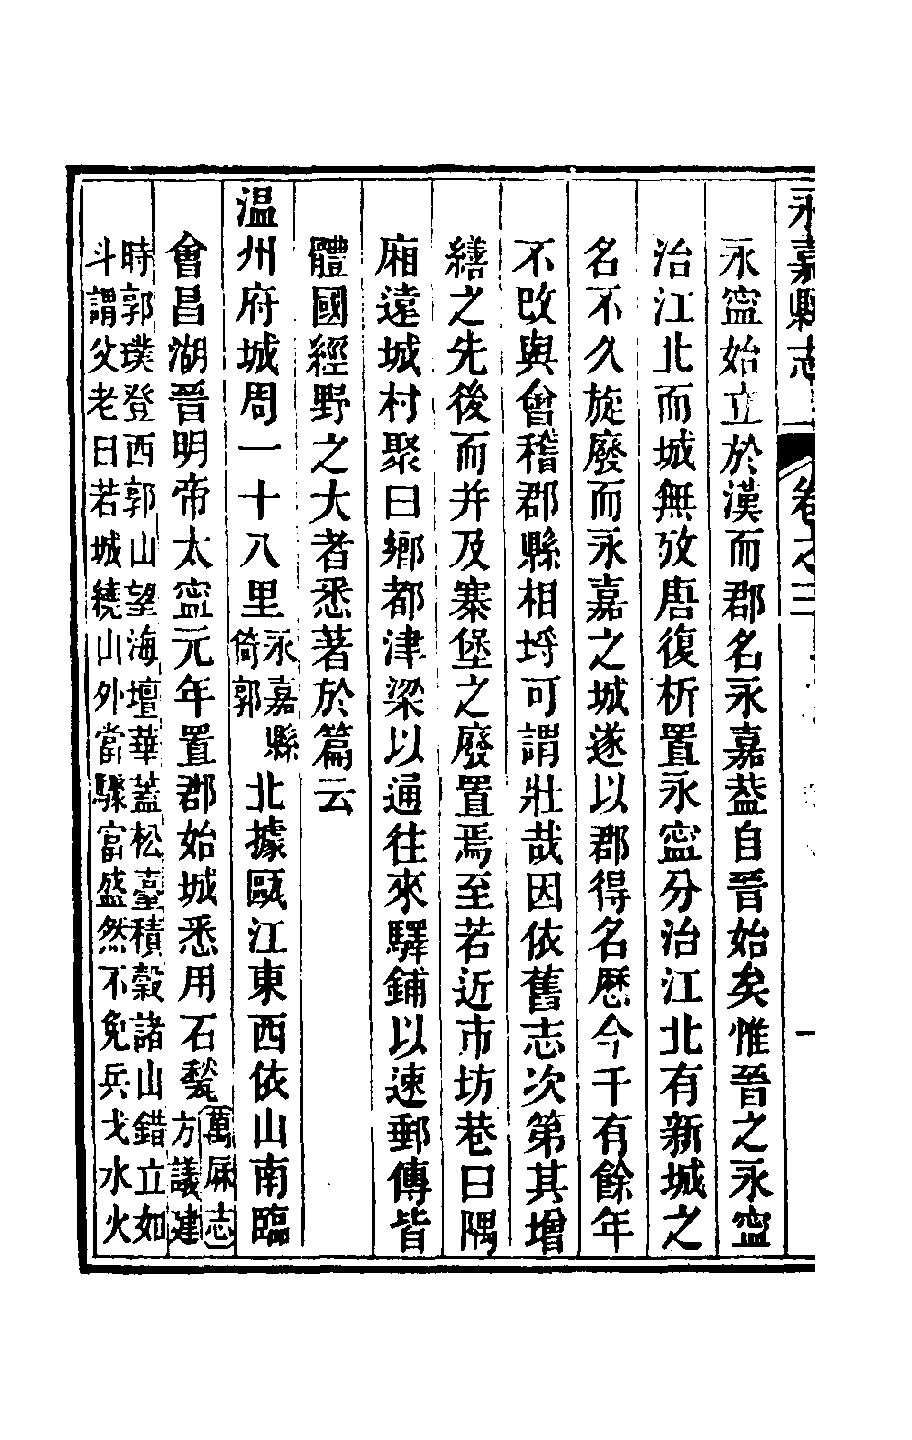 永嘉縣志 卷之三 一
永寍始立於漢而郡名永嘉葢自晉始矣惟晉之永寍
治江北而城無攷唐復析置永寍分治江北有新城之
名不久旋廢而永嘉之城遂以郡得名歷今千有餘年
不改與會稽郡縣相埒可謂壯哉因依舊志次第其增
繕之先後而幷及寨堡之廢置焉至若近市坊巷曰隅
廂遠城村聚曰鄉都津梁以通往來驛鋪以速郵傳皆
體國經野之大者悉著於篇云
温州府城周一十八里
永嘉縣
倚郭
北據甌江東西依山南臨
會昌湖晉明帝太寍元年置郡始城悉用石甃
萬厤志
方議建
時郭璞登西郭山望海壇華蓋松臺積穀諸山錯立如
斗謂父老曰若城繞山外當驟富盛然不免兵戈水火